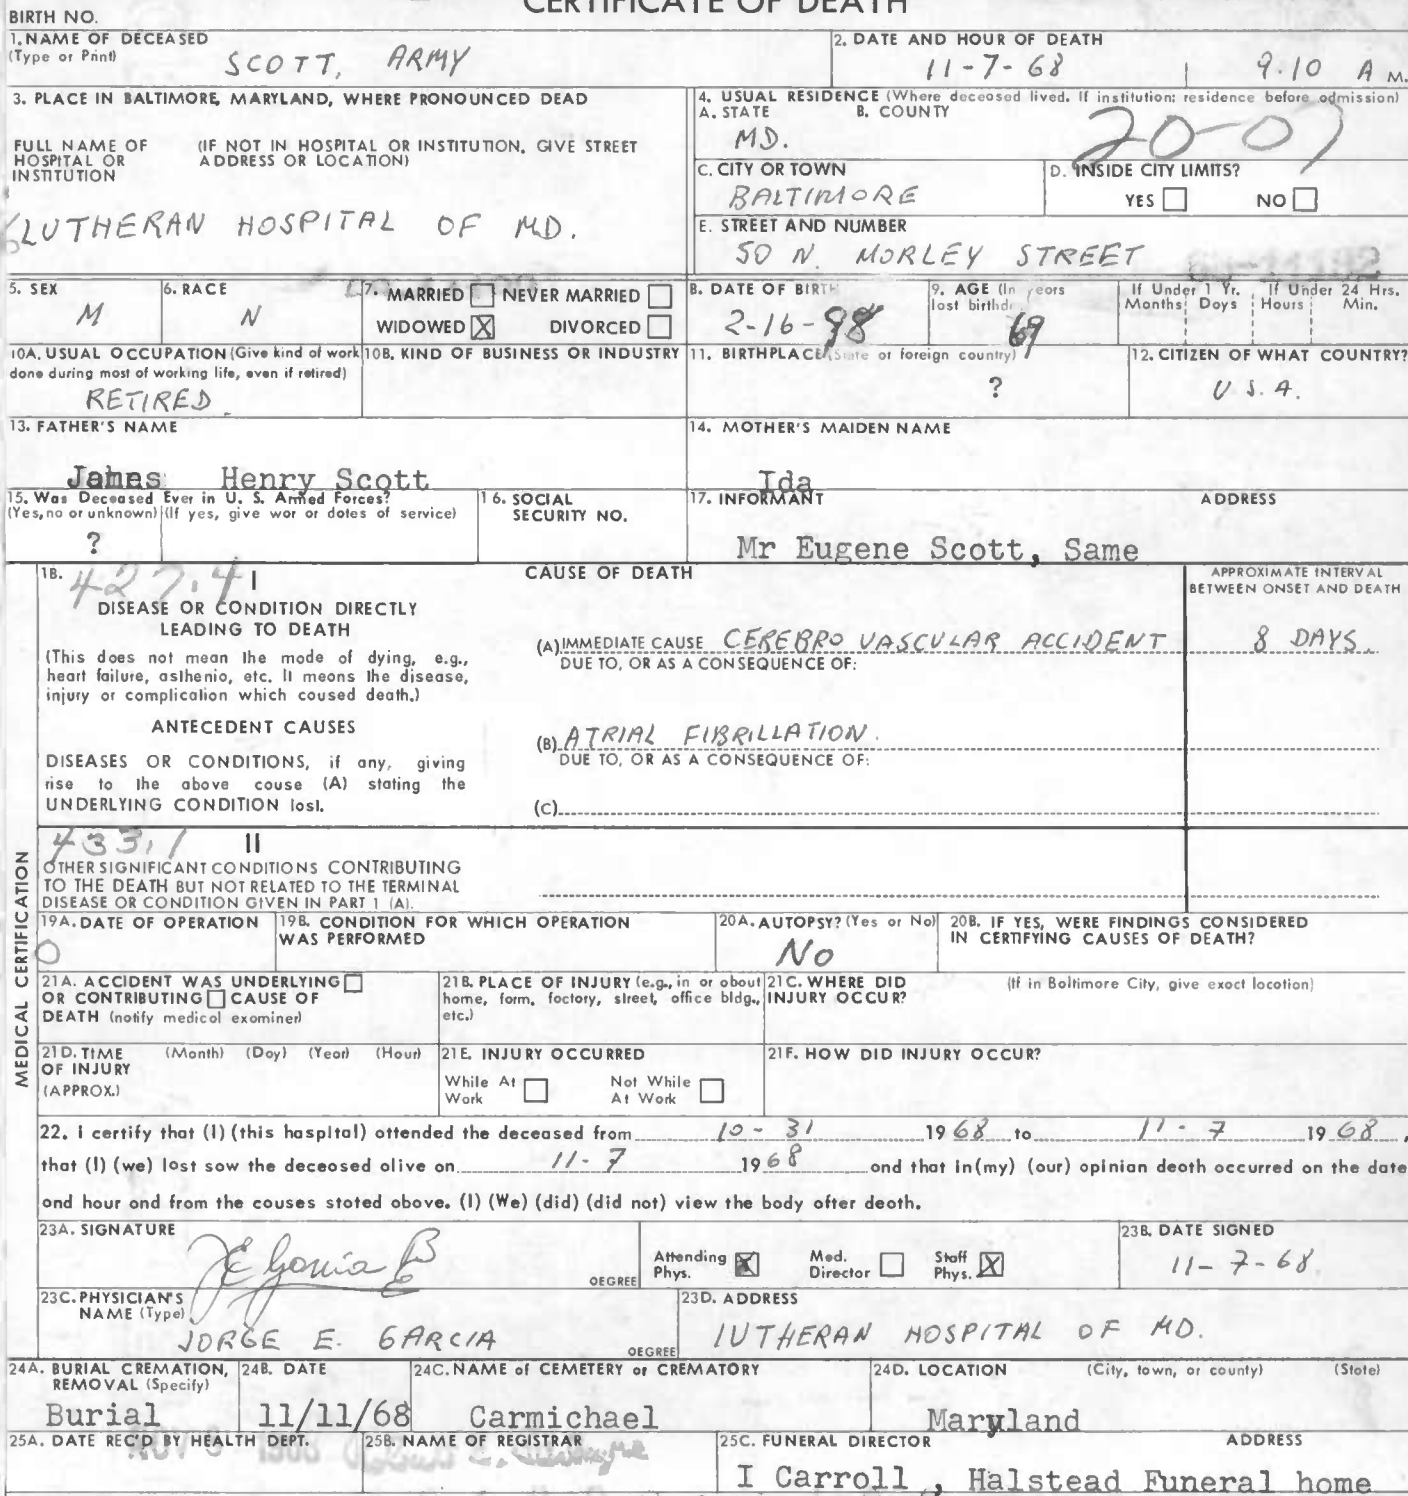 CERTIFICATE OF DEATH
BIRTH NO.
1. NAME OF DECEASED
(Type or Print)
SCOTT, ARMY
2. DATE AND HOUR OF DEATH
11-7-68 9.10 A M.
3. PLACE IN BALTIMORE, MARYLAND, WHERE PRONOUNCED DEAD
FULL NAME OF HOSPITAL OR INSTITUTION
(IF NOT IN HOSPITAL OR INSTITUTION, GIVE STREET ADDRESS OR LOCATION)
LUTHERAN HOSPITAL OF MD.
4. USUAL RESIDENCE (Where deceased lived. If institution: residence before admission)
A. STATE B. COUNTY
MD. 20-07
C. CITY OR TOWN
BALTIMORE
D. INSIDE CITY LIMITS?
YES NO
E. STREET AND NUMBER
50 N. MORLEY STREET
5. SEX
M
6. RACE
N
7. MARRIED NEVER MARRIED
WIDOWED X DIVORCED
8. DATE OF BIRTH
2-16-98
9. AGE (In years
last birthd
69
If Under 1 Yr. If Under 24 Hrs.
Months Days Hours Min.
10A. USUAL OCCUPATION (Give kind of work
done during most of working life, even if retired)
RETIRED.
10B. KIND OF BUSINESS OR INDUSTRY
11. BIRTHPLACE (State or foreign country)
?
12. CITIZEN OF WHAT COUNTRY?
U.S.A.
13. FATHER'S NAME
James Henry Scott
14. MOTHER'S MAIDEN NAME
Ida
15. Was Deceased Ever in U. S. Armed Forces?
(Yes, no or unknown) (If yes, give war or dates of service)
?
16. SOCIAL
SECURITY NO.
17. INFORMANT ADDRESS
Mr Eugene Scott, Same
18.
427.4 I
DISEASE OR CONDITION DIRECTLY
LEADING TO DEATH
(This does not mean the mode of dying, e.g.,
heart failure, asthenia, etc. It means the disease,
injury or complication which caused death.)
ANTECEDENT CAUSES
DISEASES OR CONDITIONS, if any, giving
rise to the above cause (A) stating the
UNDERLYING CONDITION last.
CAUSE OF DEATH
APPROXIMATE INTERVAL
BETWEEN ONSET AND DEATH
(A) IMMEDIATE CAUSE CEREBRO VASCULAR ACCIDENT 8 DAYS.
DUE TO, OR AS A CONSEQUENCE OF:
(B) ATRIAL FIBRILLATION.
DUE TO, OR AS A CONSEQUENCE OF:
(C)
MEDICAL CERTIFICATION
433.1 II
OTHER SIGNIFICANT CONDITIONS CONTRIBUTING
TO THE DEATH BUT NOT RELATED TO THE TERMINAL
DISEASE OR CONDITION GIVEN IN PART 1 (A).
19A. DATE OF OPERATION
0
19B. CONDITION FOR WHICH OPERATION
WAS PERFORMED
20A. AUTOPSY? (Yes or No)
No
20B. IF YES, WERE FINDINGS CONSIDERED
IN CERTIFYING CAUSES OF DEATH?
21A. ACCIDENT WAS UNDERLYING
OR CONTRIBUTING CAUSE OF
DEATH (notify medical examiner)
21B. PLACE OF INJURY (e.g., in or about
home, farm, factory, street, office bldg.,
etc.)
21C. WHERE DID
INJURY OCCUR?
(If in Baltimore City, give exact location)
21D. TIME (Month) (Day) (Year) (Hour)
OF INJURY
(APPROX.)
21E. INJURY OCCURRED
While At Work Not While At Work
21F. HOW DID INJURY OCCUR?
22. I certify that (I) (this hospital) attended the deceased from 10-31 1968 to 11-7 1968,
that (I) (we) last saw the deceased alive on 11-7 1968 and that in (my) (our) opinion death occurred on the date
and hour and from the causes stated above. (I) (We) (did) (did not) view the body after death.
23A. SIGNATURE
J E Garcia B
DEGREE
Attending Phys. X Med. Director Staff Phys. X
23B. DATE SIGNED
11-7-68
23C. PHYSICIAN'S
NAME (Type)
JORGE E. GARCIA
DEGREE
23D. ADDRESS
LUTHERAN HOSPITAL OF MD.
24A. BURIAL CREMATION,
REMOVAL (Specify)
Burial
24B. DATE
11/11/68
24C. NAME of CEMETERY or CREMATORY
Carmichael
24D. LOCATION (City, town, or county) (State)
Maryland
25A. DATE REC'D BY HEALTH DEPT.
25B. NAME OF REGISTRAR
25C. FUNERAL DIRECTOR ADDRESS
I Carroll , Halstead Funeral home